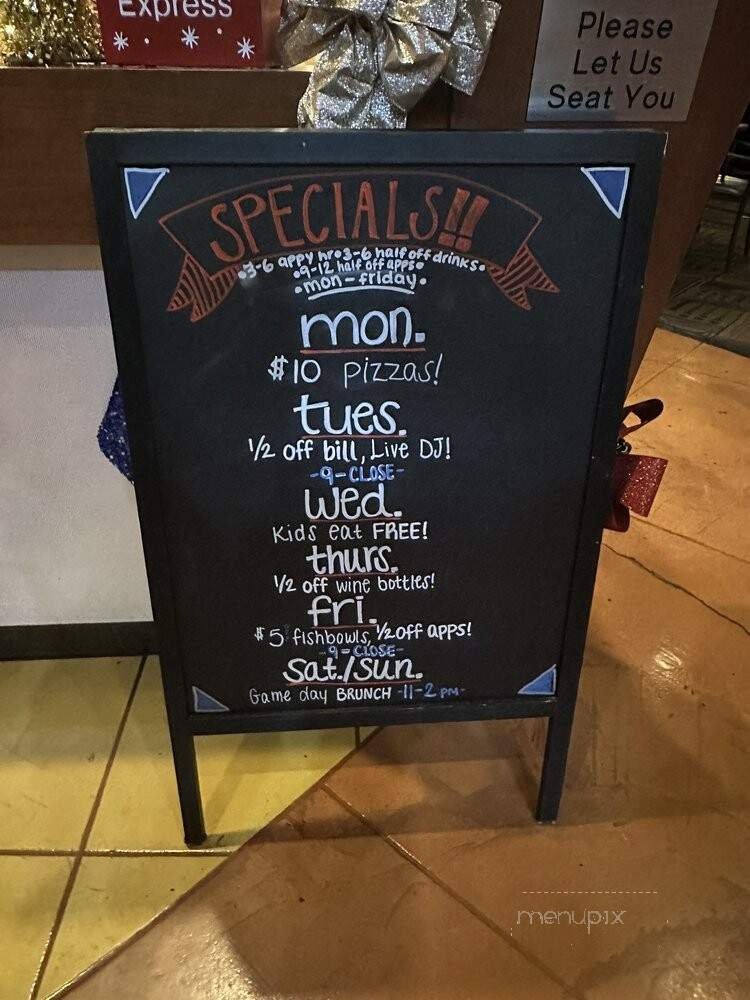 Express
Please
Let Us
Seat You
SPECIALS!!
•3-6 appy hr•3-6 half off drinks•
•9-12 half off apps•
•mon-friday•
mon.
$10 pizzas!
tues.
1/2 off bill, Live DJ!
-9-CLOSE-
Wed.
Kids eat FREE!
thurs.
1/2 off wine bottles!
fri.
$5 fishbowls, 1/2 off apps!
-9-CLOSE-
Sat./Sun.
Game day BRUNCH -11-2 PM-
menupix